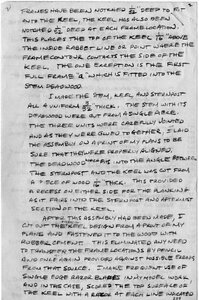 FRAMES HAVE BEEN NOTCHED 1/32 DEEP TO FIT
INTO THE KEEL, THE KEEL HAS ALSO BEEN
NOTCHED 1/32 DEEP AT EACH FRAME LOCATION.
THIS PLACES THE TOP OF THE KEEL 1/16 ABOVE
THE INSIDE RABBET LINE OR POINT WHERE THE
FRAME CONTOUR CONTACTS THE SIDE OF THE
KEEL. THE ONE EXCEPTION IS THE FIRST
FULL FRAME "A" WHICH IS FITTED INTO THE
STEM DEADWOOD.
I MADE THE STEM, KEEL AND STERNPOST
ALL A UNIFORM 5/32 THICK. THE STEM WITH ITS
DEADWOOD WERE CUT FROM A SINGLE PIECE.
THE THREE UNITS WERE CAREFULLY JOINTED
AND AS THEY WERE GLUED TOGETHER, I LAID
THE ASSEMBLY ON A PRINT OF MY PLANS TO BE
SURE THAT THEY WERE PROPERLY ALIGNED.
THE DEADWOOD FAIRS INTO THE ANGLE BETWEEN
THE STERNPOST AND THE KEEL WAS CUT FROM
A PIECE OF WOOD THICK. THIS PROVIDED
A RECESS ON EITHER SIDE FOR THE PLANKING
AS IT FAIRS INTO THE STERNPOST AND AFTERMOST
SECTION OF THE KEEL.
AFTER THIS ASSEMBLY HAD BEEN MADE, I
CUT OUT THE KEEL DESIGN FROM A PRINT OF MY
PLANS AND FASTENED IT TO THE WOOD WITH
RUBBER CEMENT. THIS ELIMINATED ANY NEED
TO TRANSFER THE FRAME LOCATIONS BY PENCIL
AND ONCE AGAIN PROVIDED AGAINST POSSIBLE ERRORS
FROM THAT SOURCE. I MAKE FREQUENT USE OF
SINGLE EDGE RAZOR BLADES IN MY MODEL WORK
AND IN THIS CASE, SCORED THE TOP SURFACE OF
THE KEEL WITH A RAZOR AT EACH LINE LOCATED